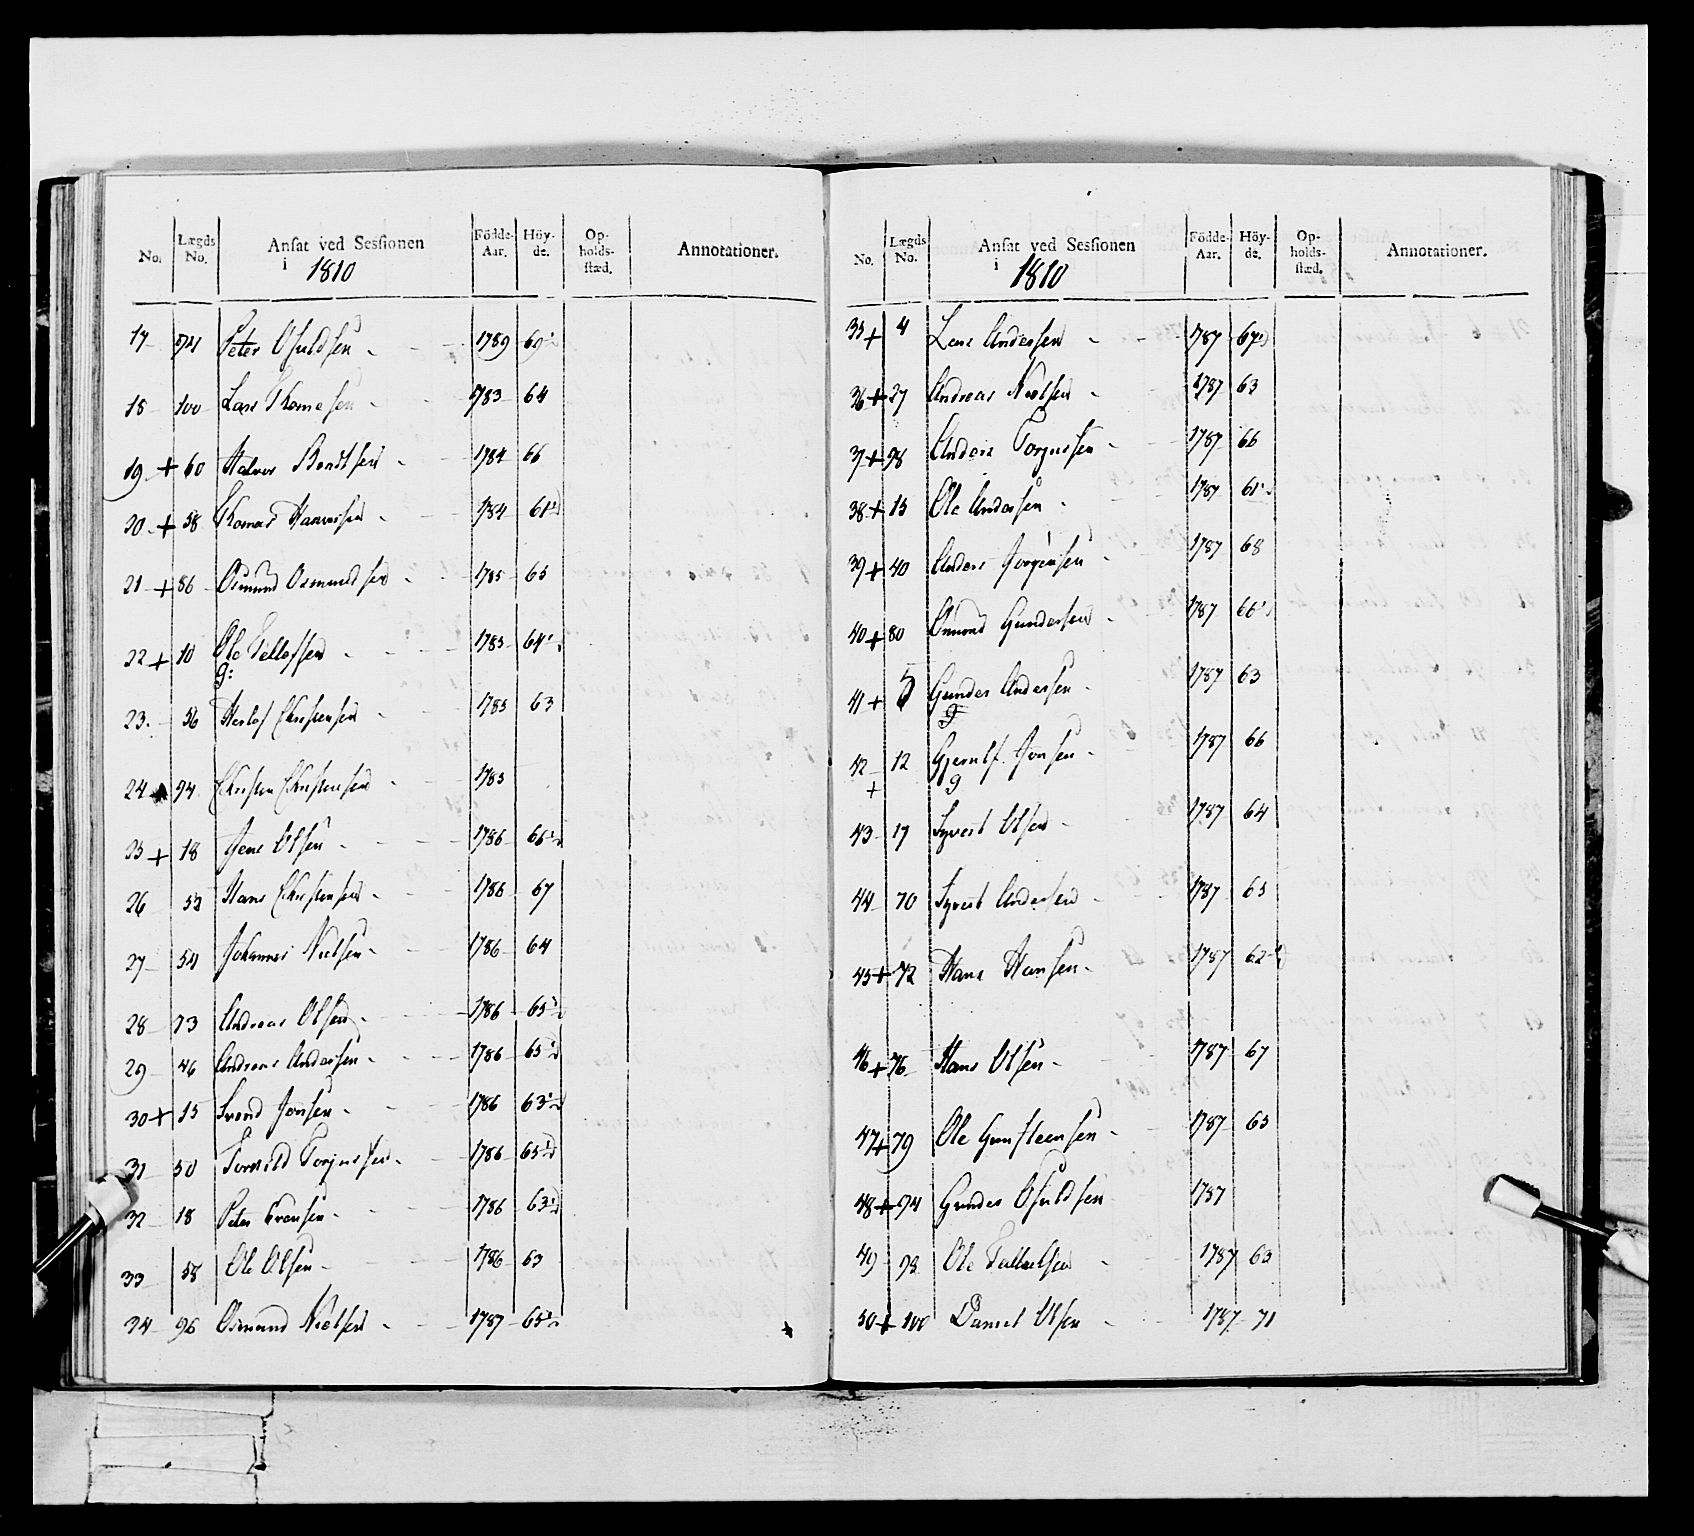 No. Lægds No. Ansat ved Sessionen i 1810 Födde-Aar. Höy-de. Op-holds-stæd. Annotationer.
17 74 Peter Osuldsen 1789 69½
18 100 Lars Thomesen 1783 64
19 + 60 Halvor Bentsen 1784 66
20 + 58 Thomas Haavorsen 1784 61½
21 + 86 Osmund Osmundsen 1785 65
22 + 10 Ole Tellefsen 1785 64½
g:
23 56 Herlof Christensen 1785 63
24 94 Christen Christensen 1785
25 + 18 Jens Olsen 1786 66½
26 53 Hans Christensen 1786 67
27 54 Johannes Nielsen 1786 64
28 73 Andreas Olsen 1786 65½
29 46 Andreas Andersen 1786 65½
30 + 15 Svend Jonsen 1786 63½
31 50 Torkild Torjussen 1786 65½
32 18 Peter Evensen 1786 63½
33 58 Ole Olsen 1786 63
34 96 Osmund Nielsen 1787 65½
No. Lægds No. Ansat ved Sessionen i 1810 Födde-Aar. Höy-de. Op-holds-stæd. Annotationer.
35 + 4 Lars Andersen 1787 67½
36 + 27 Andreas Nielsen 1787 63
37 + 98 Anders Torjussen 1787 66
38 + 15 Ole Andersen 1787 61½
39 + 40 Anders Jörgensen 1787 68
40 + 80 Omund Gundersen 1787 66½
41 + 5 Gunder Andersen 1787 63
g
42 12 Gjerulf Jonsen 1787 66
+ g
43 17 Syvert Olsen 1787 64
44 70 Syvert Andersen 1787 65
45 + 72 Hans Hansen 1787 62½
46 + 76 Hans Olsen 1787 67
47 + 79 Ole Gunsteensen 1787 65
48 + 94 Gunder Osuldsen 1787
49 98 Ole Tallaksen 1787 63
50 + 100 Daniel Olsen 1787 71